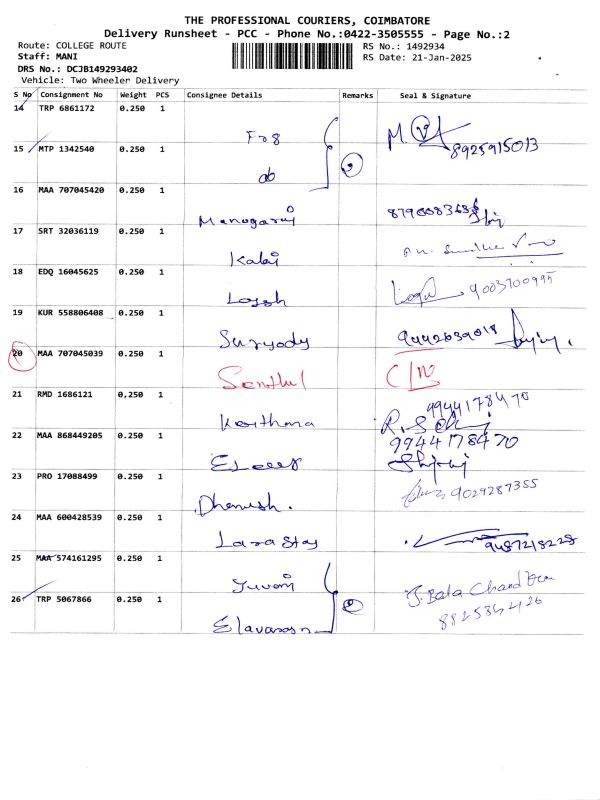 THE PROFESSIONAL COURIERS, COIMBATORE
Delivery Runsheet - PCC - Phone No.:0422-3505555 - Page No.:2
Route: COLLEGE ROUTE RS No.: 1492934
Staff: MANI RS Date: 21-Jan-2025
DRS No.: DCJB149293402
Vehicle: Two Wheeler Delivery
S No Consignment No Weight PCS Consignee Details Remarks Seal & Signature
14 TRP 6861172 0.250 1
15 MTP 1342540 0.250 1 8925915013
do 2
16 MAA 707045420 0.250 1
Manogaraj
17 SRT 32036119 0.250 1
Kabi
18 EDQ 16045625 0.250 1
Logesh 9003700995
19 KUR 558806408 0.250 1
Suryody 9442639018
20 MAA 707045039 0.250 1
Senthil C/no
21 RMD 1686121 0,250 1
Keithana 9944178470
22 MAA 868449205 0.250 1 9944178470
23 PRO 17088499 0.250 1
Dhanush. 9029289355
24 MAA 600428539 0.250 1
9487218228
25 MAA 574161295 0.250 1
Yuvani J. Bala Chandran
26 TRP 5067866 0.250 1 2
Elavarasan